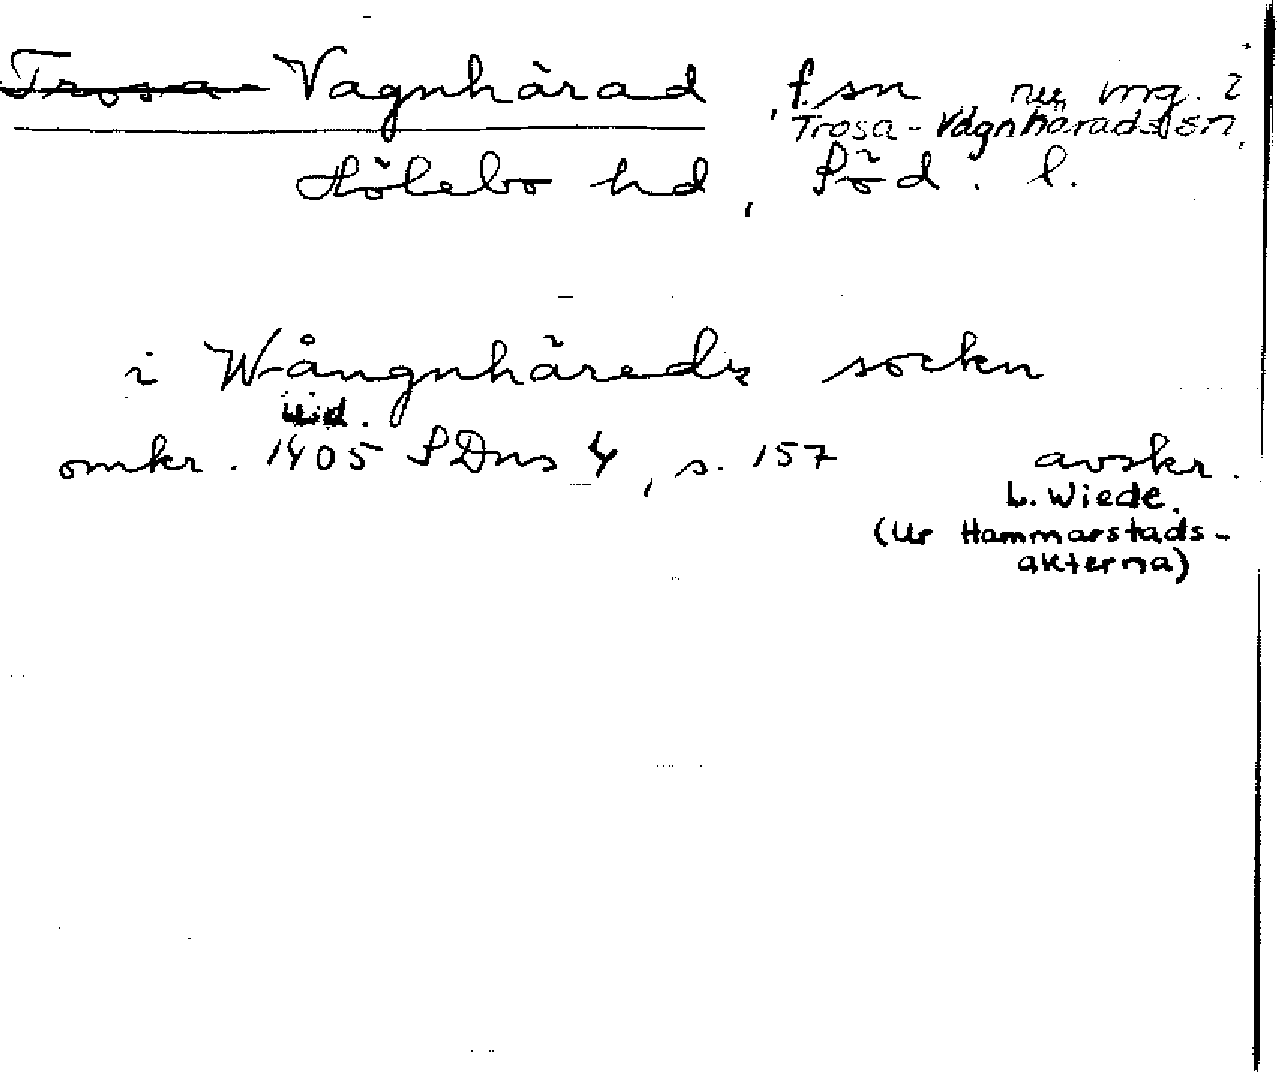 Trosa- Vagnhärad, f. sn nu ing. i
Trosa-Vagnhärads sn,
Hölebo hd, Söd. l.
i Wångnhäredz sockn
vid.
omkr. 1405 SDns 4, s. 157 avskr.
L. Wiede.
(Ur Hammarstads-
akterna)